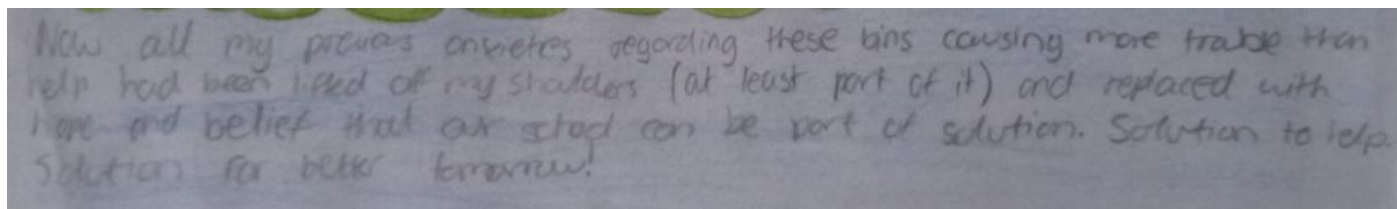 Now all my previous anxieties regarding these bins causing more trouble than
help had been lifted of my shoulders (at least part of it) and replaced with
hope and belief that our school can be part of solution. Solution to help.
Solution for better tomorrow!